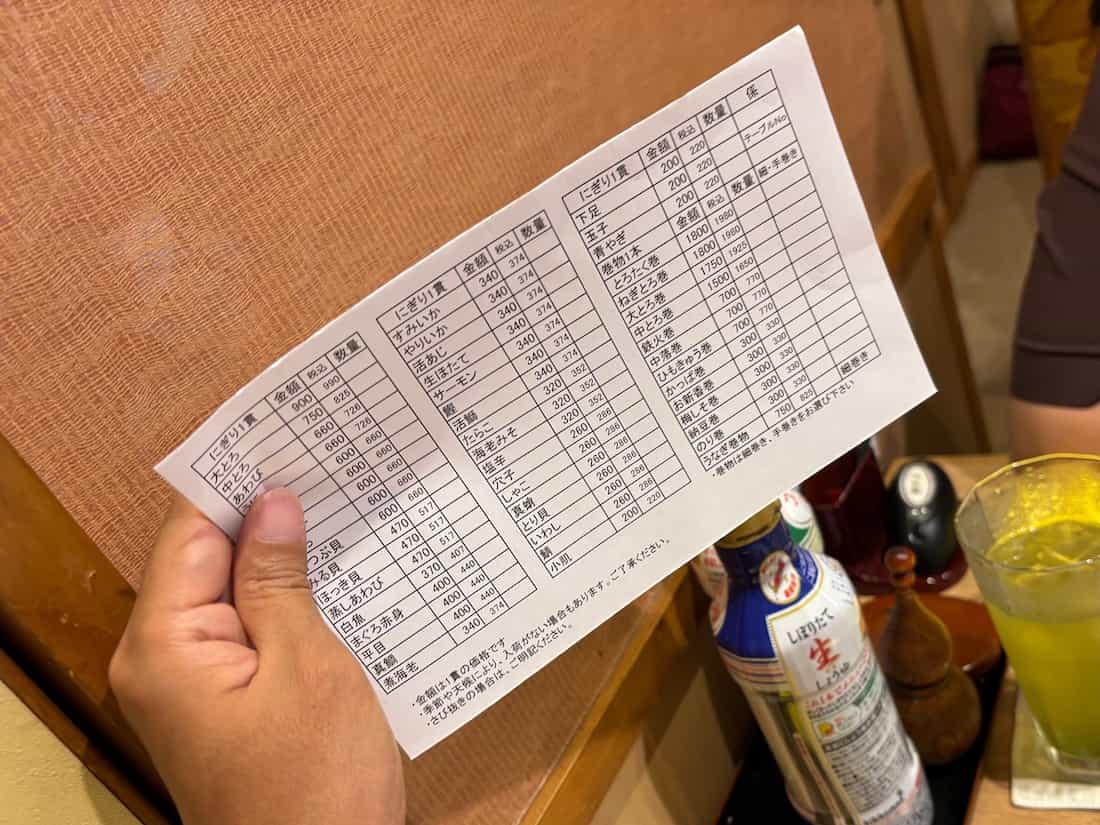 にぎり1貫 金額 税込 数量
大とろ 900 990
中とろ 750 825
あわび 660 726
660
600 660
600 660
600 660
つぶ貝 600 660
みる貝 470 517
ほっき貝 470 517
蒸しあわび 370 407
白魚 400 440
まぐろ赤身 400 440
平目 400 440
真鯛 340 374
煮海老
・金額は1貫の価格です
・季節や天候により、入荷がない場合もあります。ご了承ください。
・さび抜きの場合は、ご明記ください。
にぎり1貫 金額 税込 数量
すみいか 340 374
やりいか 340 374
活あじ 340 374
生ほたて 340 374
サーモン 340 374
鰹 340 374
320 352
たらこ 320 352
海老みそ 320 352
塩辛 260 286
穴子 260 286
しゃこ 260 286
真蛸 260 286
とり貝 260 286
いわし 200 220
鯖
小肌
にぎり1貫 金額 税込 数量 係
下足 200 220
玉子 200 220 テーブルNo
青やぎ 200 220
巻物1本 金額 税込 数量 細・手巻き
とろたく巻 1800 1980
ねぎとろ巻 1800 1980
大とろ巻 1750 1925
中とろ巻 1500 1650
鉄火巻 700 770
中落巻 700 770
ひもきゅう巻 700 770
かっぱ巻 300 330
お新香巻 300 330
梅しそ巻 300 330
納豆巻 300 330
のり巻 300 330
うなぎ巻物 750 825 細巻き
・巻物は細巻き、手巻きをお選び下さい
しぼりたて
生
しょうゆ